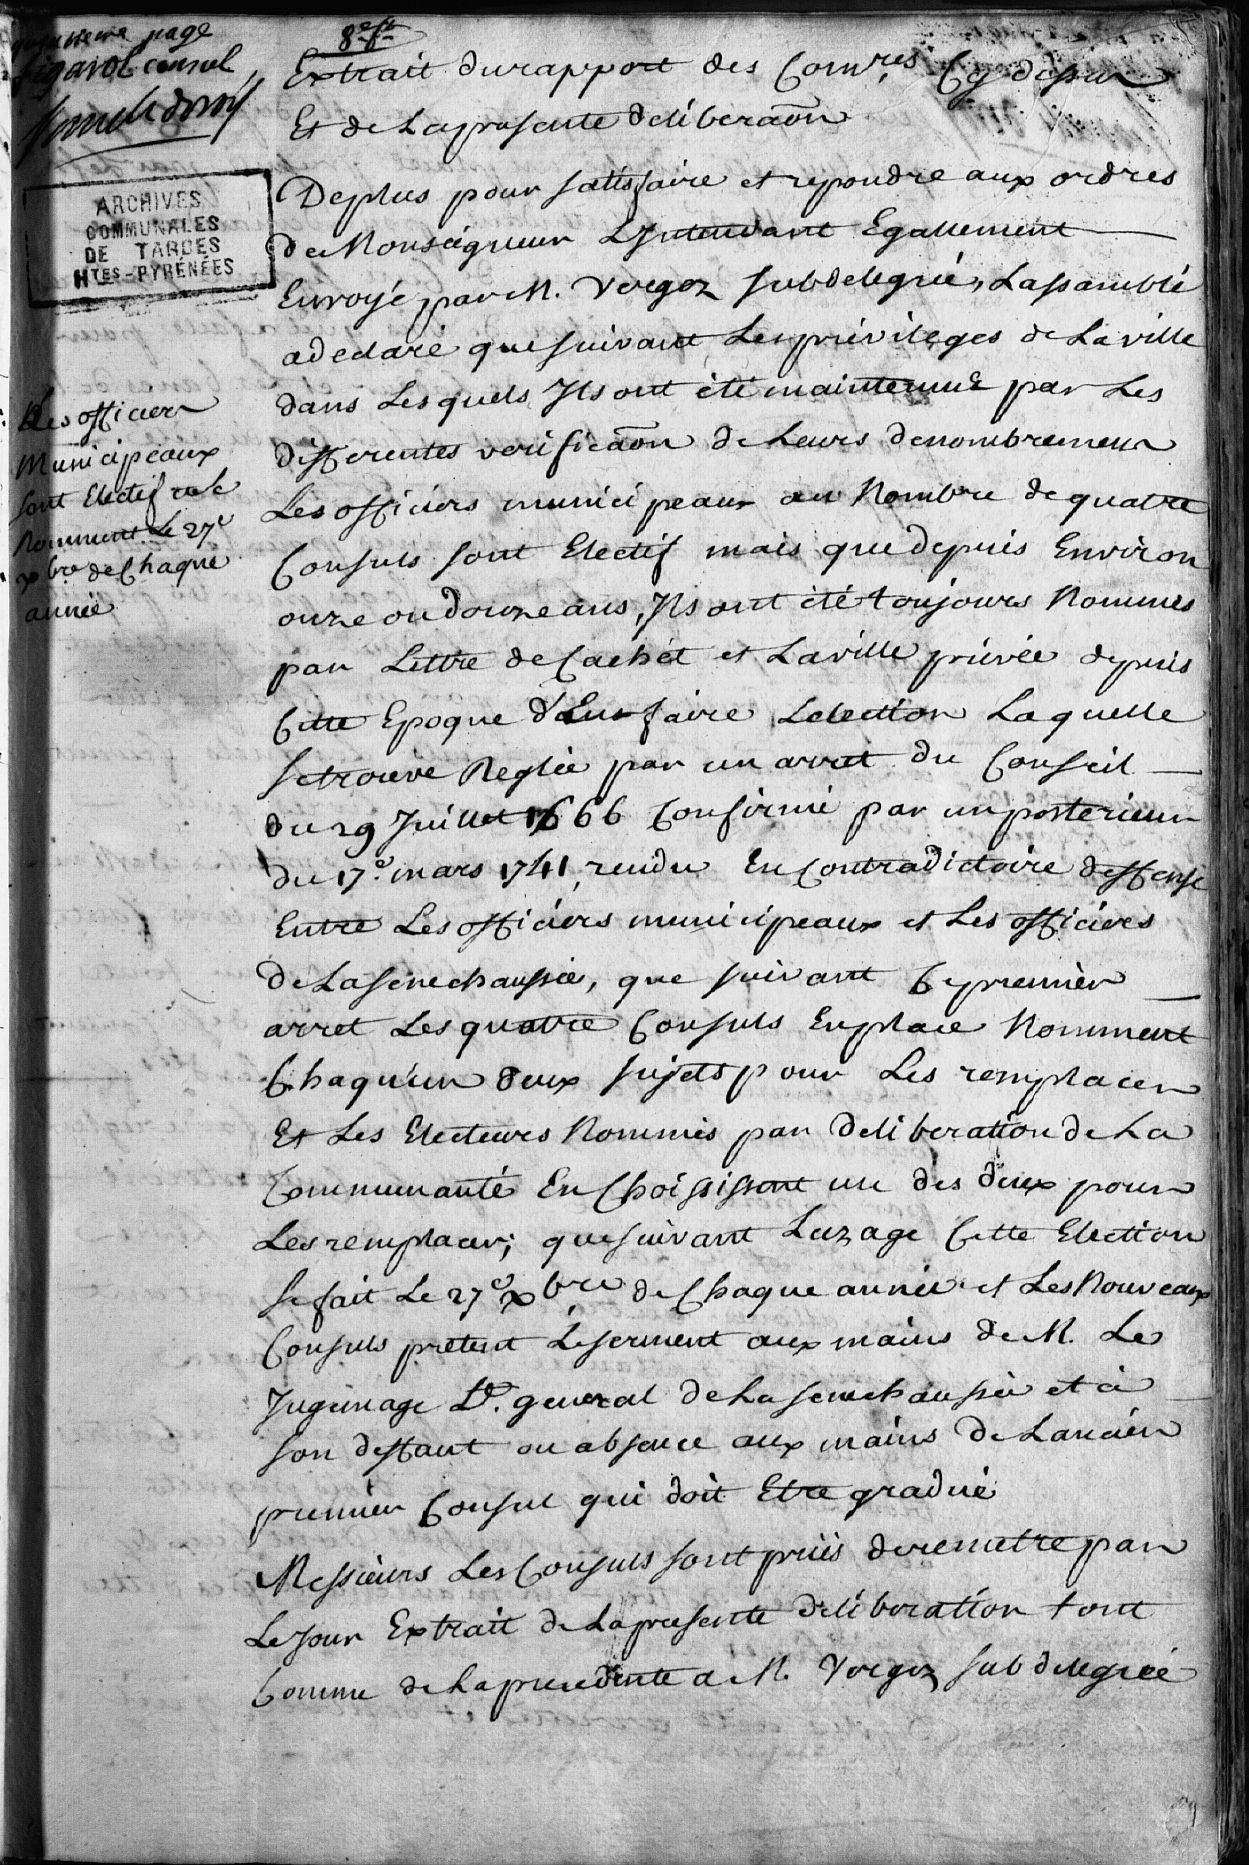 page
8e ft
figarol consul
ARCHIVES
COMMUNALES
DE TARBES
HTES-PYRÉNÉES
Extrait du rapport des Comres Cy dessus
Et de La presente deliberaôn
De plus pour satisfaire et repondre aux ordres
de Monseigneur L'Jntendant Egallement
Envoyé par M. Vergez subdelegué, Lassamblé
a declaré que suivant Les privileges de La ville
dans Lesquels Jls ont été maintenue par Les
differentes verificaôn de Leurs denombremens
Les officiers municipeaux au Nombre de quatre
Consuls sont Electif mais que depuis Environ
onze ou douze ans, Jls ont été toujours Nommés
par Lettre de Cachét et La ville privée depuis
Cette Epoque d'En faire Lelection Laquelle
se trouve Reglée par un arret du Conseil
du 29 Juillet 1666 Confirmé par un posterieur
du 17e. mars 1741, rendu En Contradictoire deffense
Entre Les officiers municipeaux et Les officiers
de La senechaussée, que suivant Ce premier
arret Les quatre Consuls En place Nomment
Chaqu'un deux sujets pour Les remplacer
Et Les Electeurs Nommés par deliberation de La
Communauté En Choisissent un des deux pour
Les remplacer; que suivant Luzage Cette Election
se fait Le 27e xbre de Chaque année et Les Nouveaux
Consuls pretent Le serment aux mains de M. Le
Jugemage Lt. general de La senechaussée et à
son deffaut ou absence aux mains de Lancien
premier Consul qui doit Etre gradué
Messieurs Les Consuls sont priés de remetre par
Le jour Extrait de La presente deliberation tout
Comme de La precedente a M. Vergez subdelegué
Les officiers
Municipeaux
sont Electif et se
Nomment Le 27e
xbre de Chaque
année